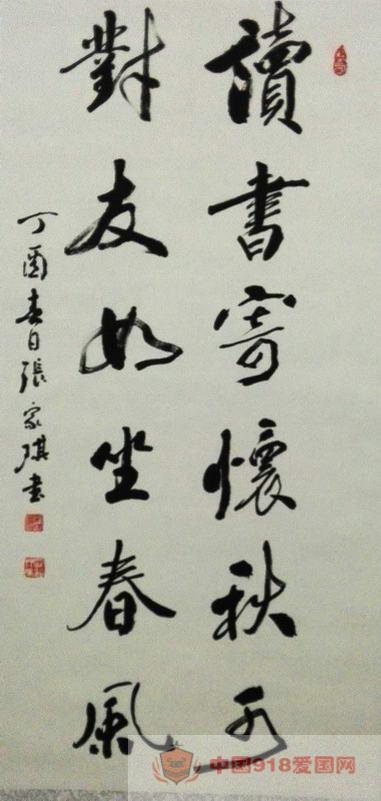 讀書寄懷秋水
對友如坐春風
丁酉春日張家琪書
中国918爱国网